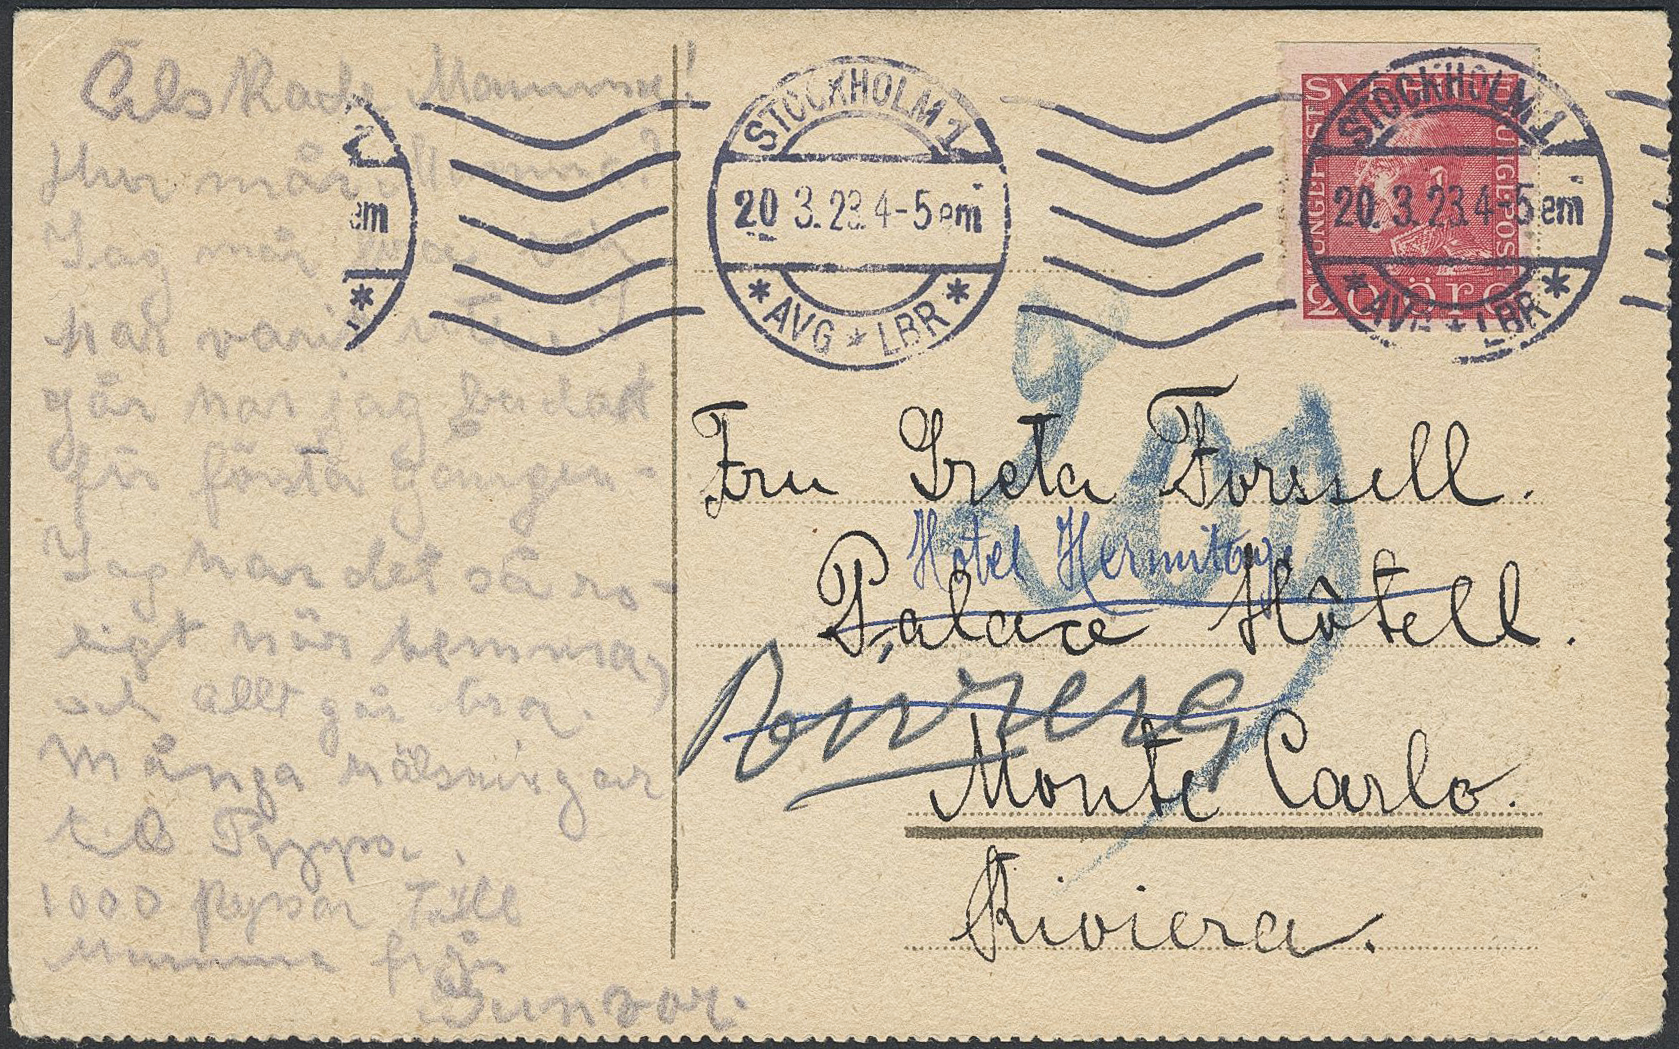 Älskade Mamma!
Hur mår Mamma?
Jag mår bra och
har varit ute. I
går har jag badat
för första gången.
Jag har det så ro-
ligt här hemma,
och allt går bra.
Många hälsningar
till Pappa.
1000 pussar till
Mamma från
Gunvor.
STOCKHOLM 1
20 3.23.4-5 em
AVG * LBR
em
SVERIGE
UTGIFTSPOST
20 öre
STOCKHOLM 1
20.3.23.4-5 em
AVG * LBR
Fru Greta Forssell.
Hotel Hermitage
Palace Hôtell.
Monte Carlo.
Riviera.